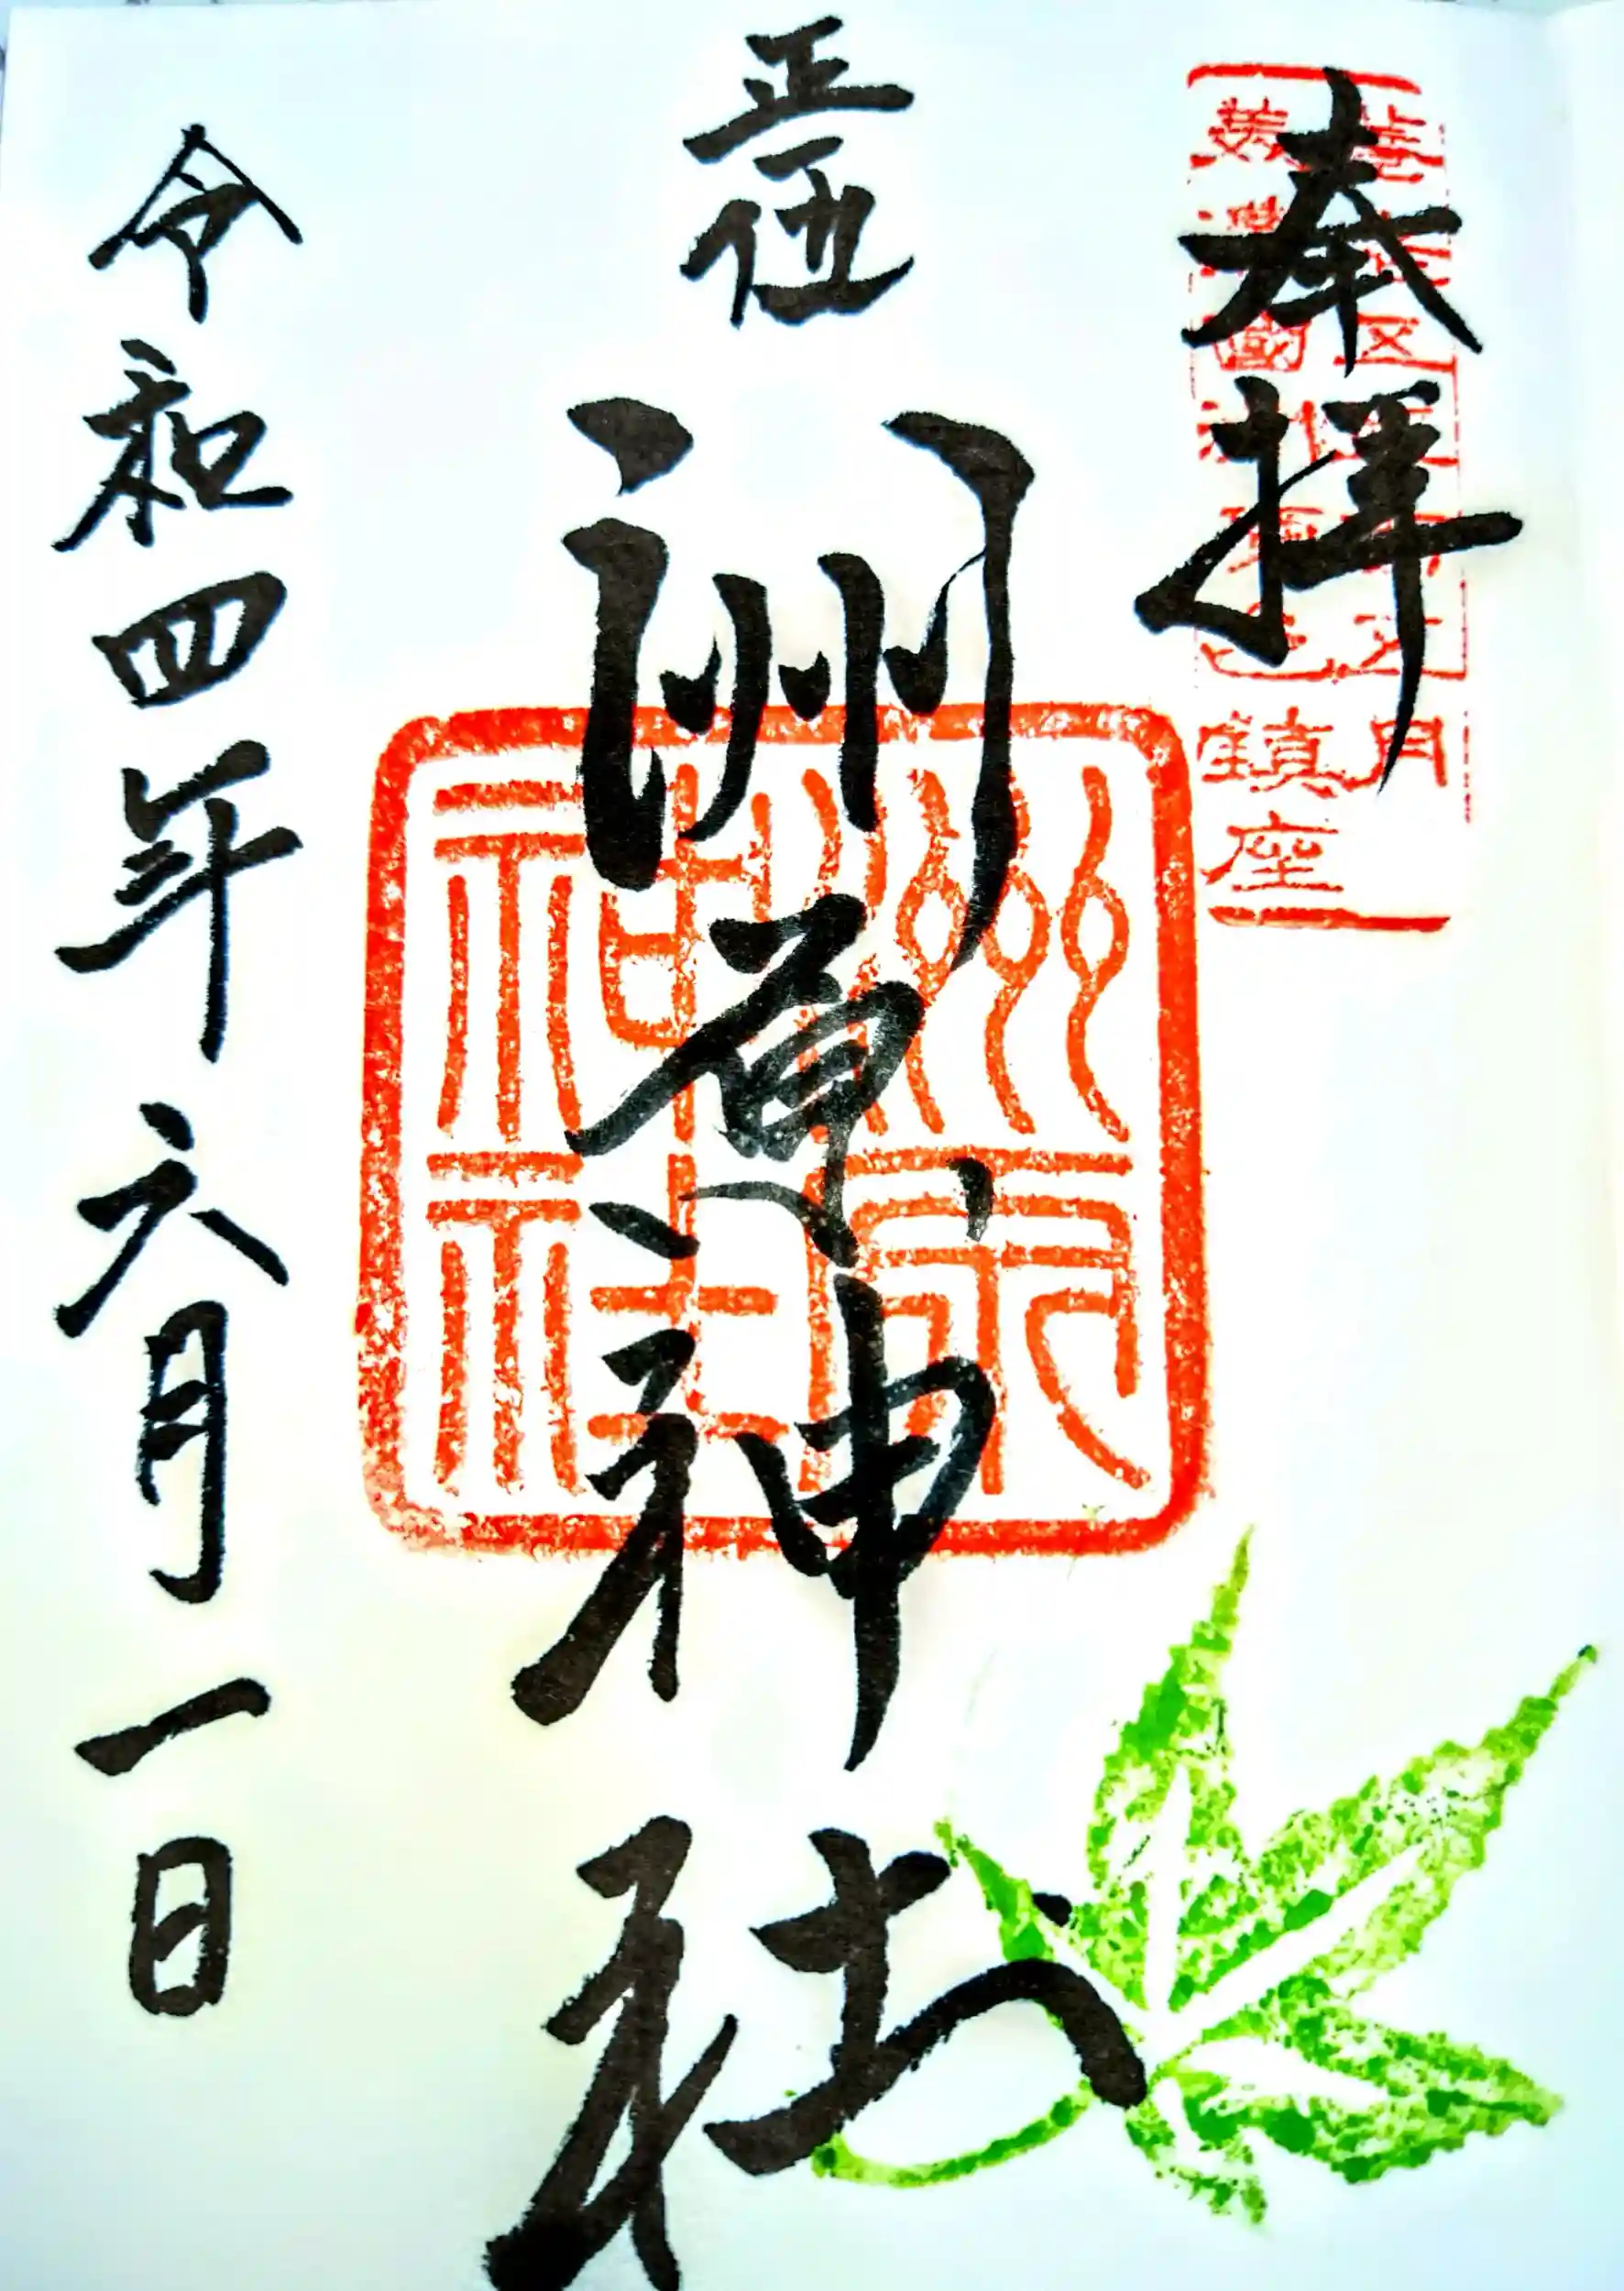 奉拝
美濃國
鎮座
正一位
洲原神社
洲原
神社
令和四年六月一日